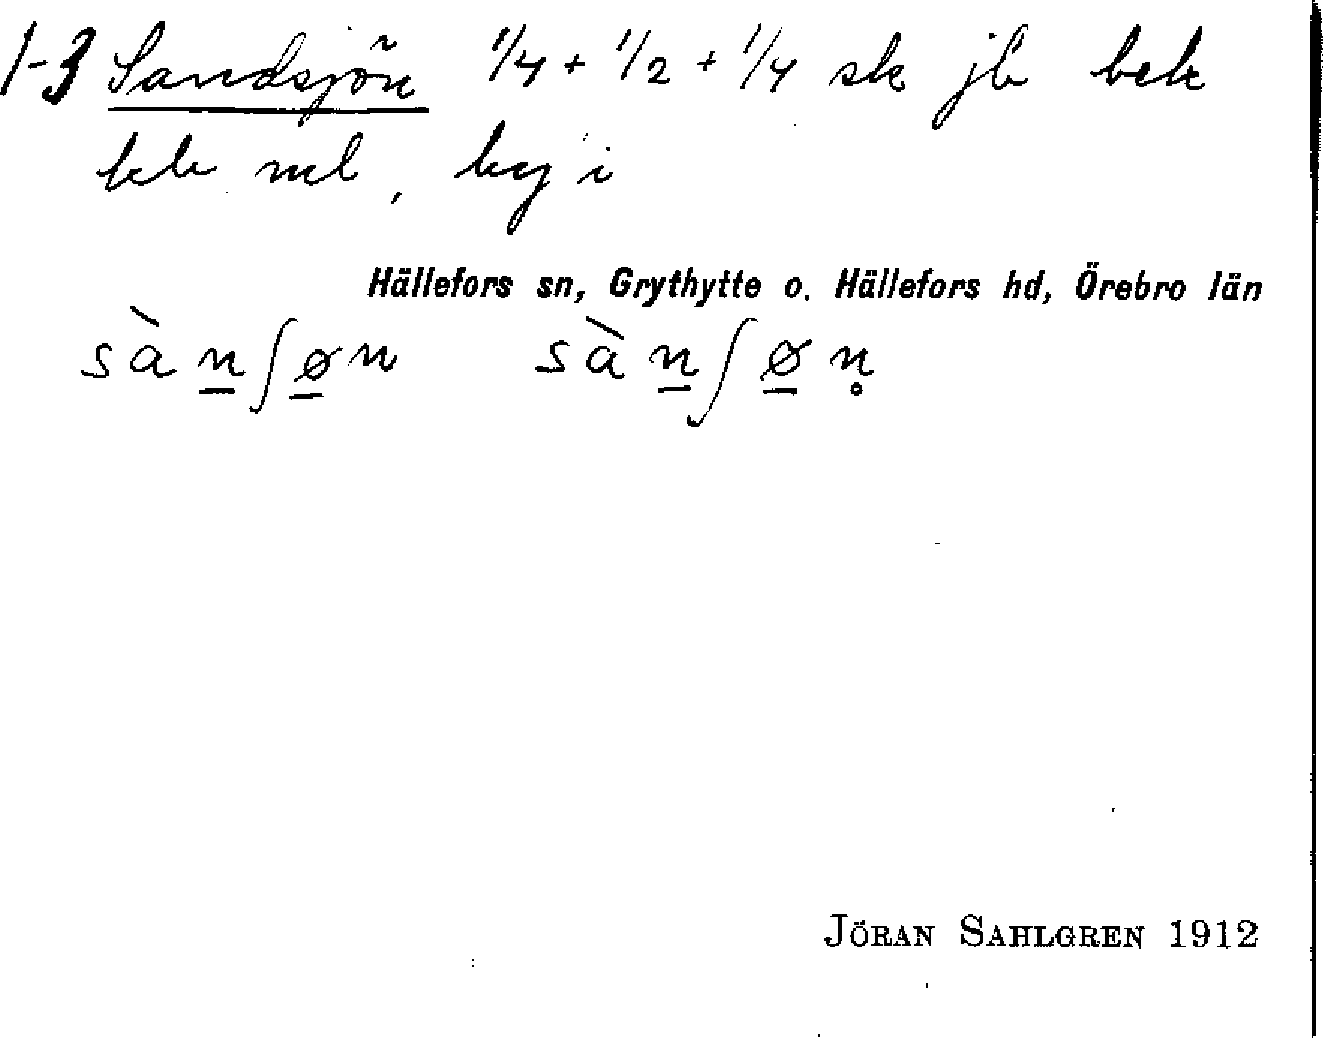 1-3 Sandsjön 1/4 + 1/2 + 1/4 sk jb bek
kk ml, by i
Hällefors sn, Grythytte o. Hällefors hd, Örebro län
sàn̲ʃø̲n sàn̲ʃø̲n̥
JÖRAN SAHLGREN 1912